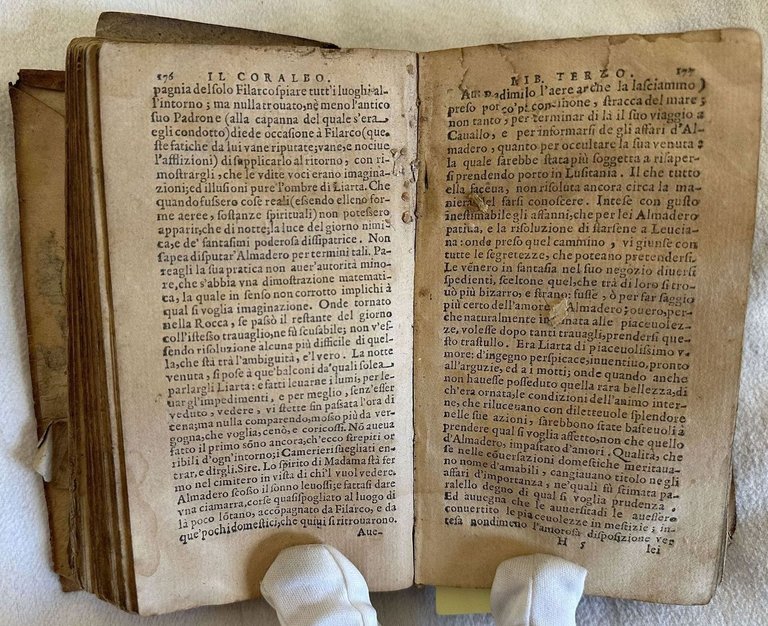 176 IL CORALBO.
pagnia del solo Filarco spiare tutt'i luoghi al-
l'intorno; ma nulla trouato, nè meno l'antico
suo Padrone (alla capanna del quale s'era
egli condotto) diede occasione à Filarco (que-
ste fatiche da lui vane riputate; vane, e nociue
l'afflizioni) di supplicarlo al ritorno, con ri-
mostrargli, che le vdite voci erano imagina-
zioni; ed illusioni pure l'ombre di Liarta. Che
quando fussero cose reali (essendo elleno for-
me aeree, sostanze spirituali) non potessero
apparir, che di notte; la luce del giorno nimi-
ca, e de' fantasimi poderosa dissipatrice. Non
sapea disputar'Almadero per termini tali. Pa-
reagli la sua pratica non auer'autorità mino-
re, che s'abbia vna dimostrazione matemati-
ca, la quale in senso non corrotto implichi à
qual si voglia imaginazione. Onde tornato
nella Rocca, se passò il restante del giorno
coll'istesso trauaglio, nè fù scusabile; non v'es-
sendo risoluzione alcuna più difficile di quel-
la, che stà trà l'ambiguità, e'l vero. La notte
venuta, si pose à que'balconi da'quali solea
parlargli Liarta: e fatti leuarne i lumi, per le-
uar gl'impedimenti, e per meglio, senz'esser
veduto, vedere, vi stette sin passata l'ora di
cena; ma nulla comparendo, mosso più da ver-
gogna, che voglia, cenò, e coricossi. Nō aueua
fatto il primo sōno ancora, ch'ecco strepiti or-
ribili d'ogn'intorno; i Camerieri suegliati en-
trar, e dirgli. Sire. Lo spirito di Madama stà fer-
mo nel cimitero in vista di chi'l vuol vedere.
Almadero scosso il sonno leuossi; e fattasi dare
vna ciamarra, corse quasi spogliato al luogo di
là poco lōtano, accōpagnato da Filarco, e da
que'pochi domestici, che quiui si ritrouarono.
Aue-
LIB. TERZO. 177
l'aere arche la lasciammo
preso stracca del mare;
non tanto, per terminar di là il suo viaggio à
Cauallo, e per informarsi de gli affari d'Al-
madero, quanto per occultare la sua venuta:
la quale sarebbe stata più soggetta a risaper-
si prendendo porto in Lusitania. Il che tutto
ella faceua, non risoluta ancora circa la ma-
niera del farsi conoscere. Intese con gusto
inestimabile gli affanni, che per lei Almadero
patiua, e la risoluzione di starsene a Leucia-
na: onde preso quel cammino, vi giunse con
tutte le segretezze, che poteano pretendersi.
Le vēnero in fantasia nel suo negozio diuersi
spedienti, sceltone quel, che trà di loro si tro-
uò più bizarro, e strano; fusse, ò per far saggio
più certo dell'amore Almadero; ouero, per-
che naturalmente alle piaceuolez-
ze, volesse dopo tanti trauagli, prendersi que-
sto trastullo. Era Liarta di piaceuolissimo v-
more: d'ingegno perspicace, inuentiuo, pronto
all'arguzie, ed a i motti; onde quando anche
non hauesse posseduto quella rara bellezza, di
ch'era ornata, le condizioni dell'animo inter-
ne, che riluceuano con diletteuole splendore
nelle sue azioni, sarebbono state basteuoli à
prendere qual si voglia affetto, non che quello
d'Almadero, impastato d'amori. Qualità, che
se nelle cōuersazioni domestiche meritaua-
no nome d'amabili, cangiauano titolo ne gli
affari d'importanza, ne'quali fù stimata pa-
ralello degno di qual si voglia prudenza.
Ed auuegna che le auuersità de le auessero
conuertito le piaceuolezze in mestizie; in-
tesa nondimeno l'amorosa disposizione ver
H 5 lei